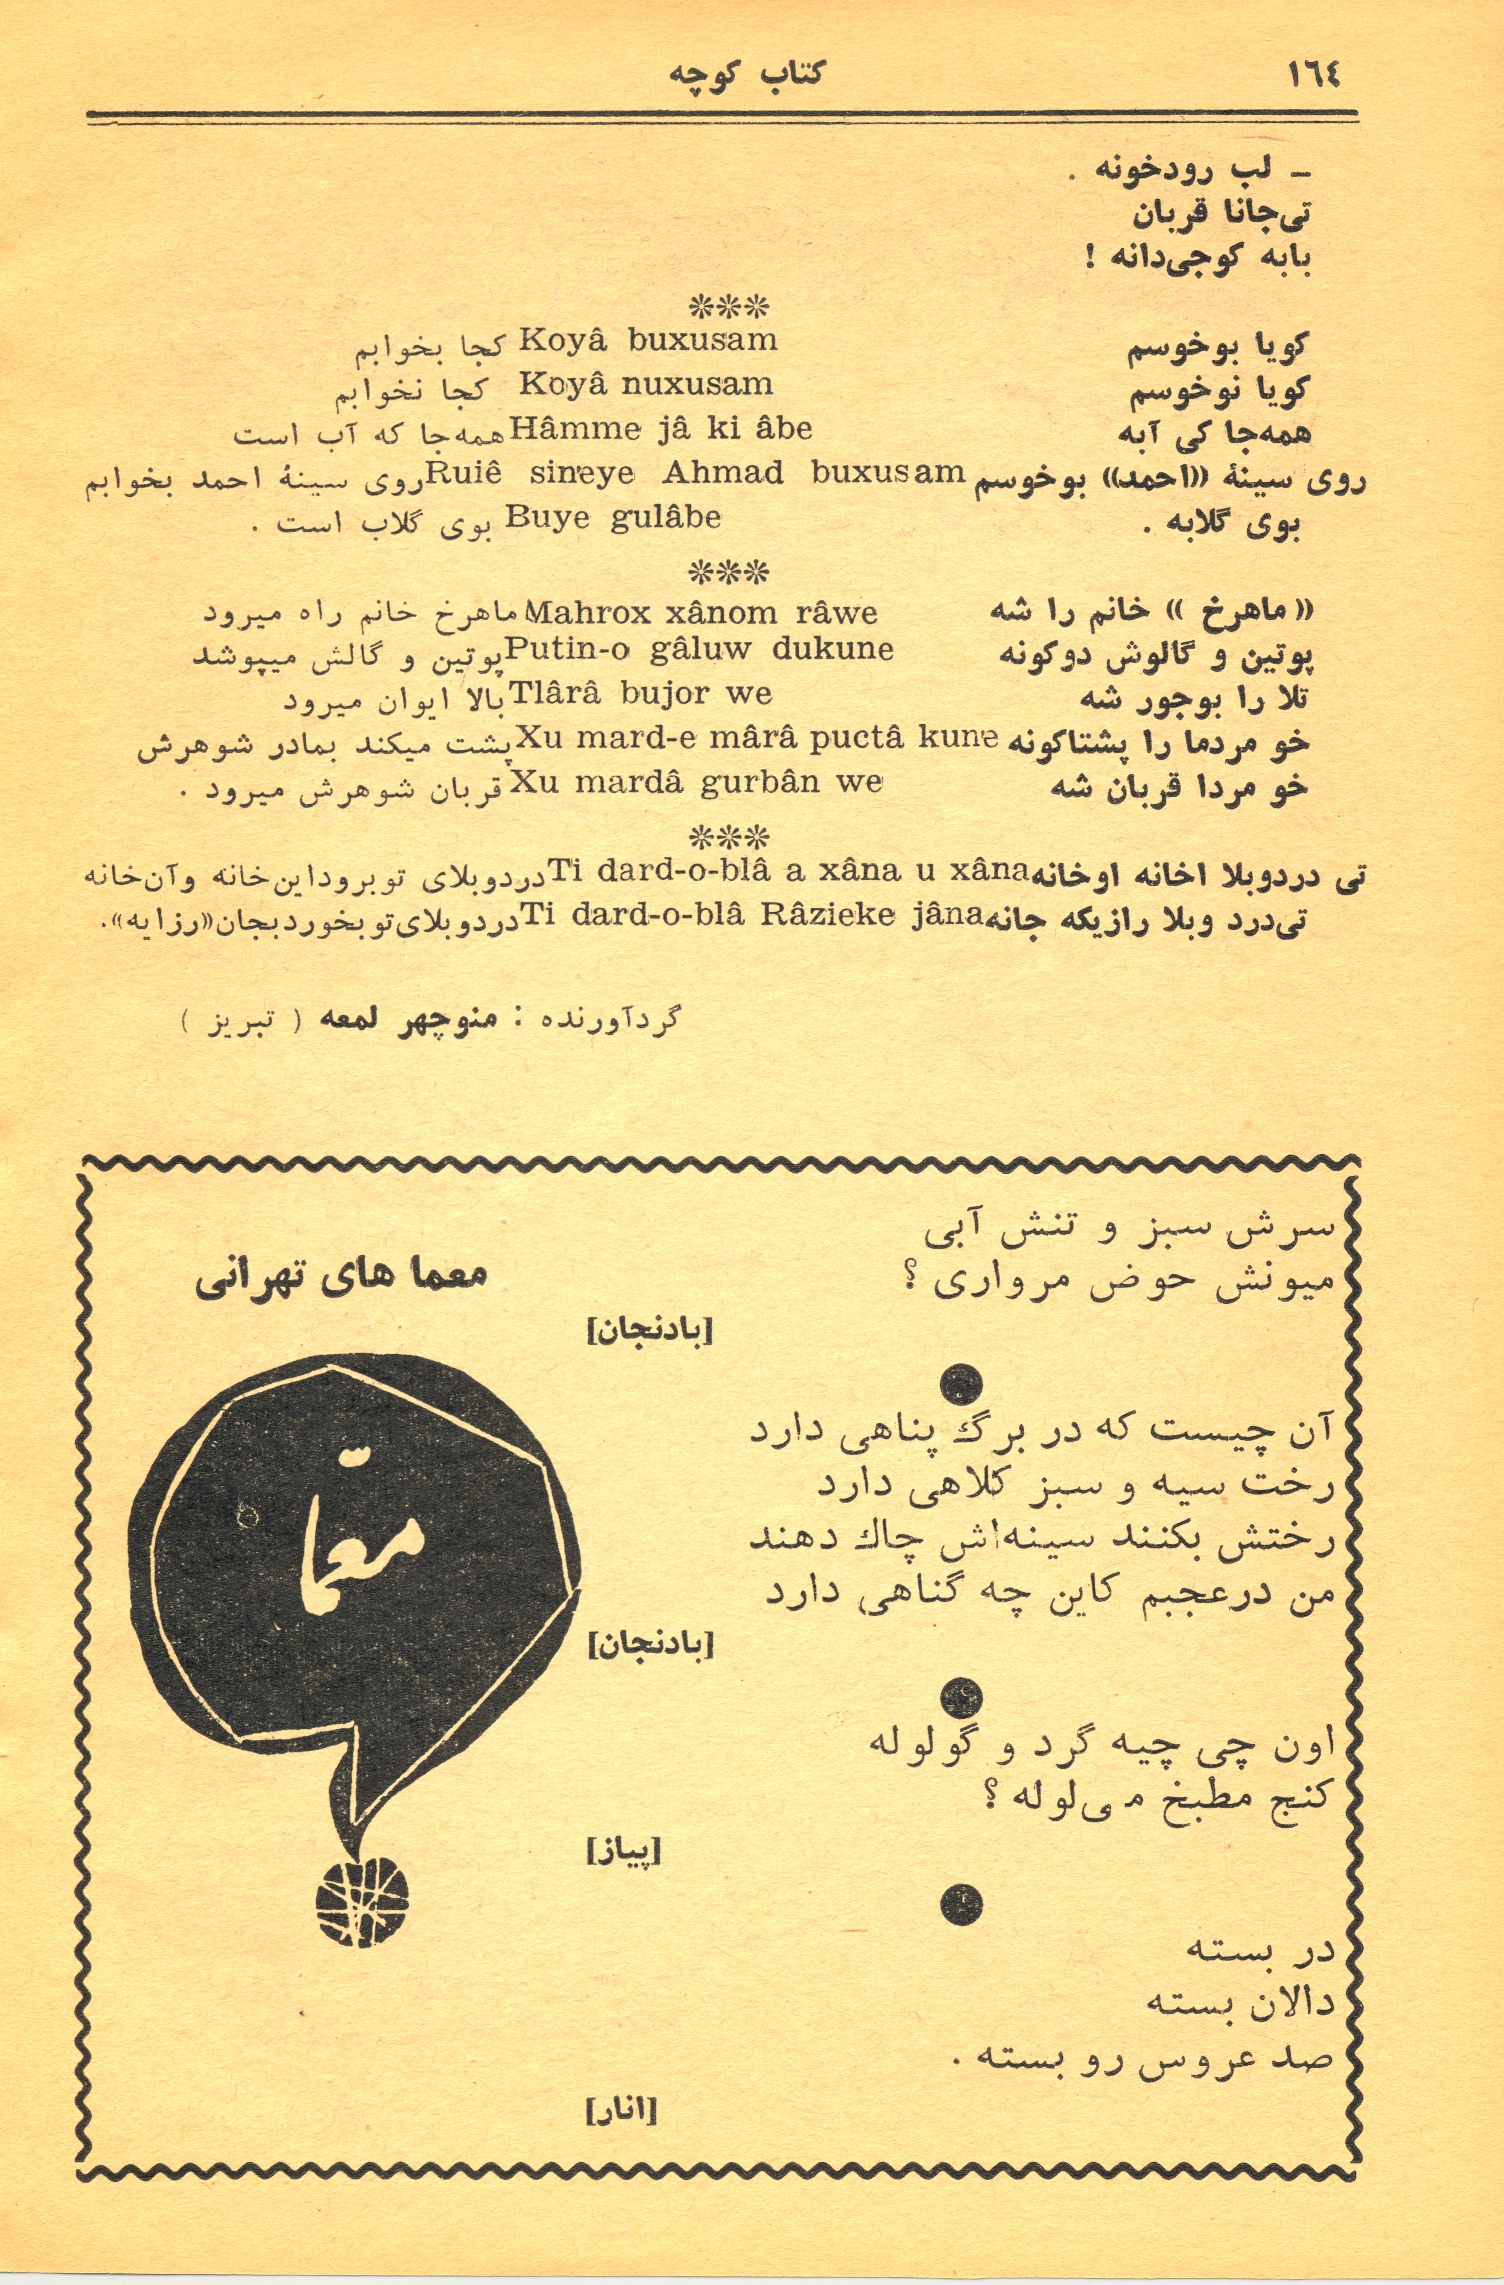 ١٦٤ کتاب کوچه
ـ لب رودخونه .
تی‌جانا قربان
بابه کوجی‌دانه !
***
کویا بوخوسم Koyâ buxusam کجا بخوابم
کویا نوخوسم Koyâ nuxusam کجا نخوابم
همه‌جا کی آبه Hâmme jâ ki âbe همه‌جا که آب است
روی سینهٔ «احمد» بوخوسم Ruiê sineye Ahmad buxusam روی سینهٔ احمد بخوابم
بوی گلابه . Buye gulâbe بوی گلاب است .
***
«ماهرخ » خانم را شه Mahrox xânom râwe ماهرخ خانم راه میرود
پوتین و گالوش دوکونه Putin-o gâluw dukune پوتین و گالش میپوشد
تلا را بوجور شه Tlârâ bujor we بالا ایوان میرود
خو مردما را پشتاکونه Xu mard-e mârâ puctâ kune پشت میکند بمادر شوهرش
خو مردا قربان شه Xu mardâ gurbân we قربان شوهرش میرود .
***
تی دردوبلا اخانه اوخانه Ti dard-o-blâ a xâna u xâna دردوبلای تو بروداین‌خانه وآن‌خانه
تی‌درد وبلا رازیکه جانه Ti dard-o-blâ Râzieke jâna دردوبلای‌تو بخورد بجان«رزایه».
گردآورنده : منوچهر لمعه ( تبریز )
معما های تهرانی
معمّا
سرش سبز و تنش آبی
میونش حوض مرواری ؟
[بادنجان]
آن چیست که در برگ پناهی دارد
رخت سیه و سبز کلاهی دارد
رختش بکنند سینه‌اش چاك دهند
من درعجبم کاین چه گناهی دارد
[بادنجان]
اون چی چیه گرد و گولوله
کنج مطبخ می‌لوله ؟
[پیاز]
در بسته
دالان بسته
صد عروس رو بسته .
[انار]